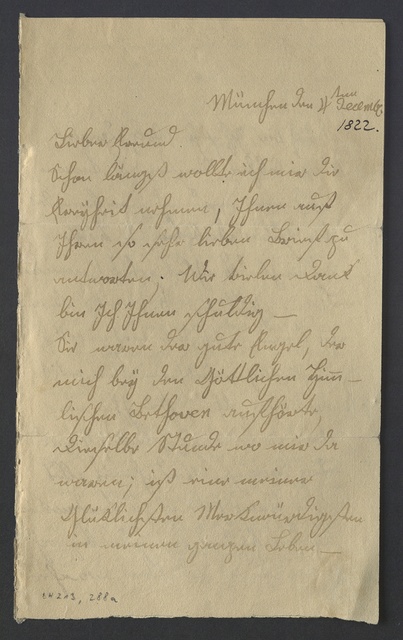 München den 4ten Decembr
1822.
Lieber Freund.
Schon längst wollte ich mir die
Freyheit nehmen, Ihnen auf
Ihren so sehr lieben Brief zu
antworten. Wie vielen Dank
bin Ich Ihnen schuldig —
Sie waren der gute Engel, der
mich bey den Göttlichen Him-
lischen Bethoven aufführte,
Dieselbe Stunde wo wir da
waren, ist eine meiner
Glüklichsten Merkwürdigsten
in meinen ganzen Leben —
LW 213, 288a